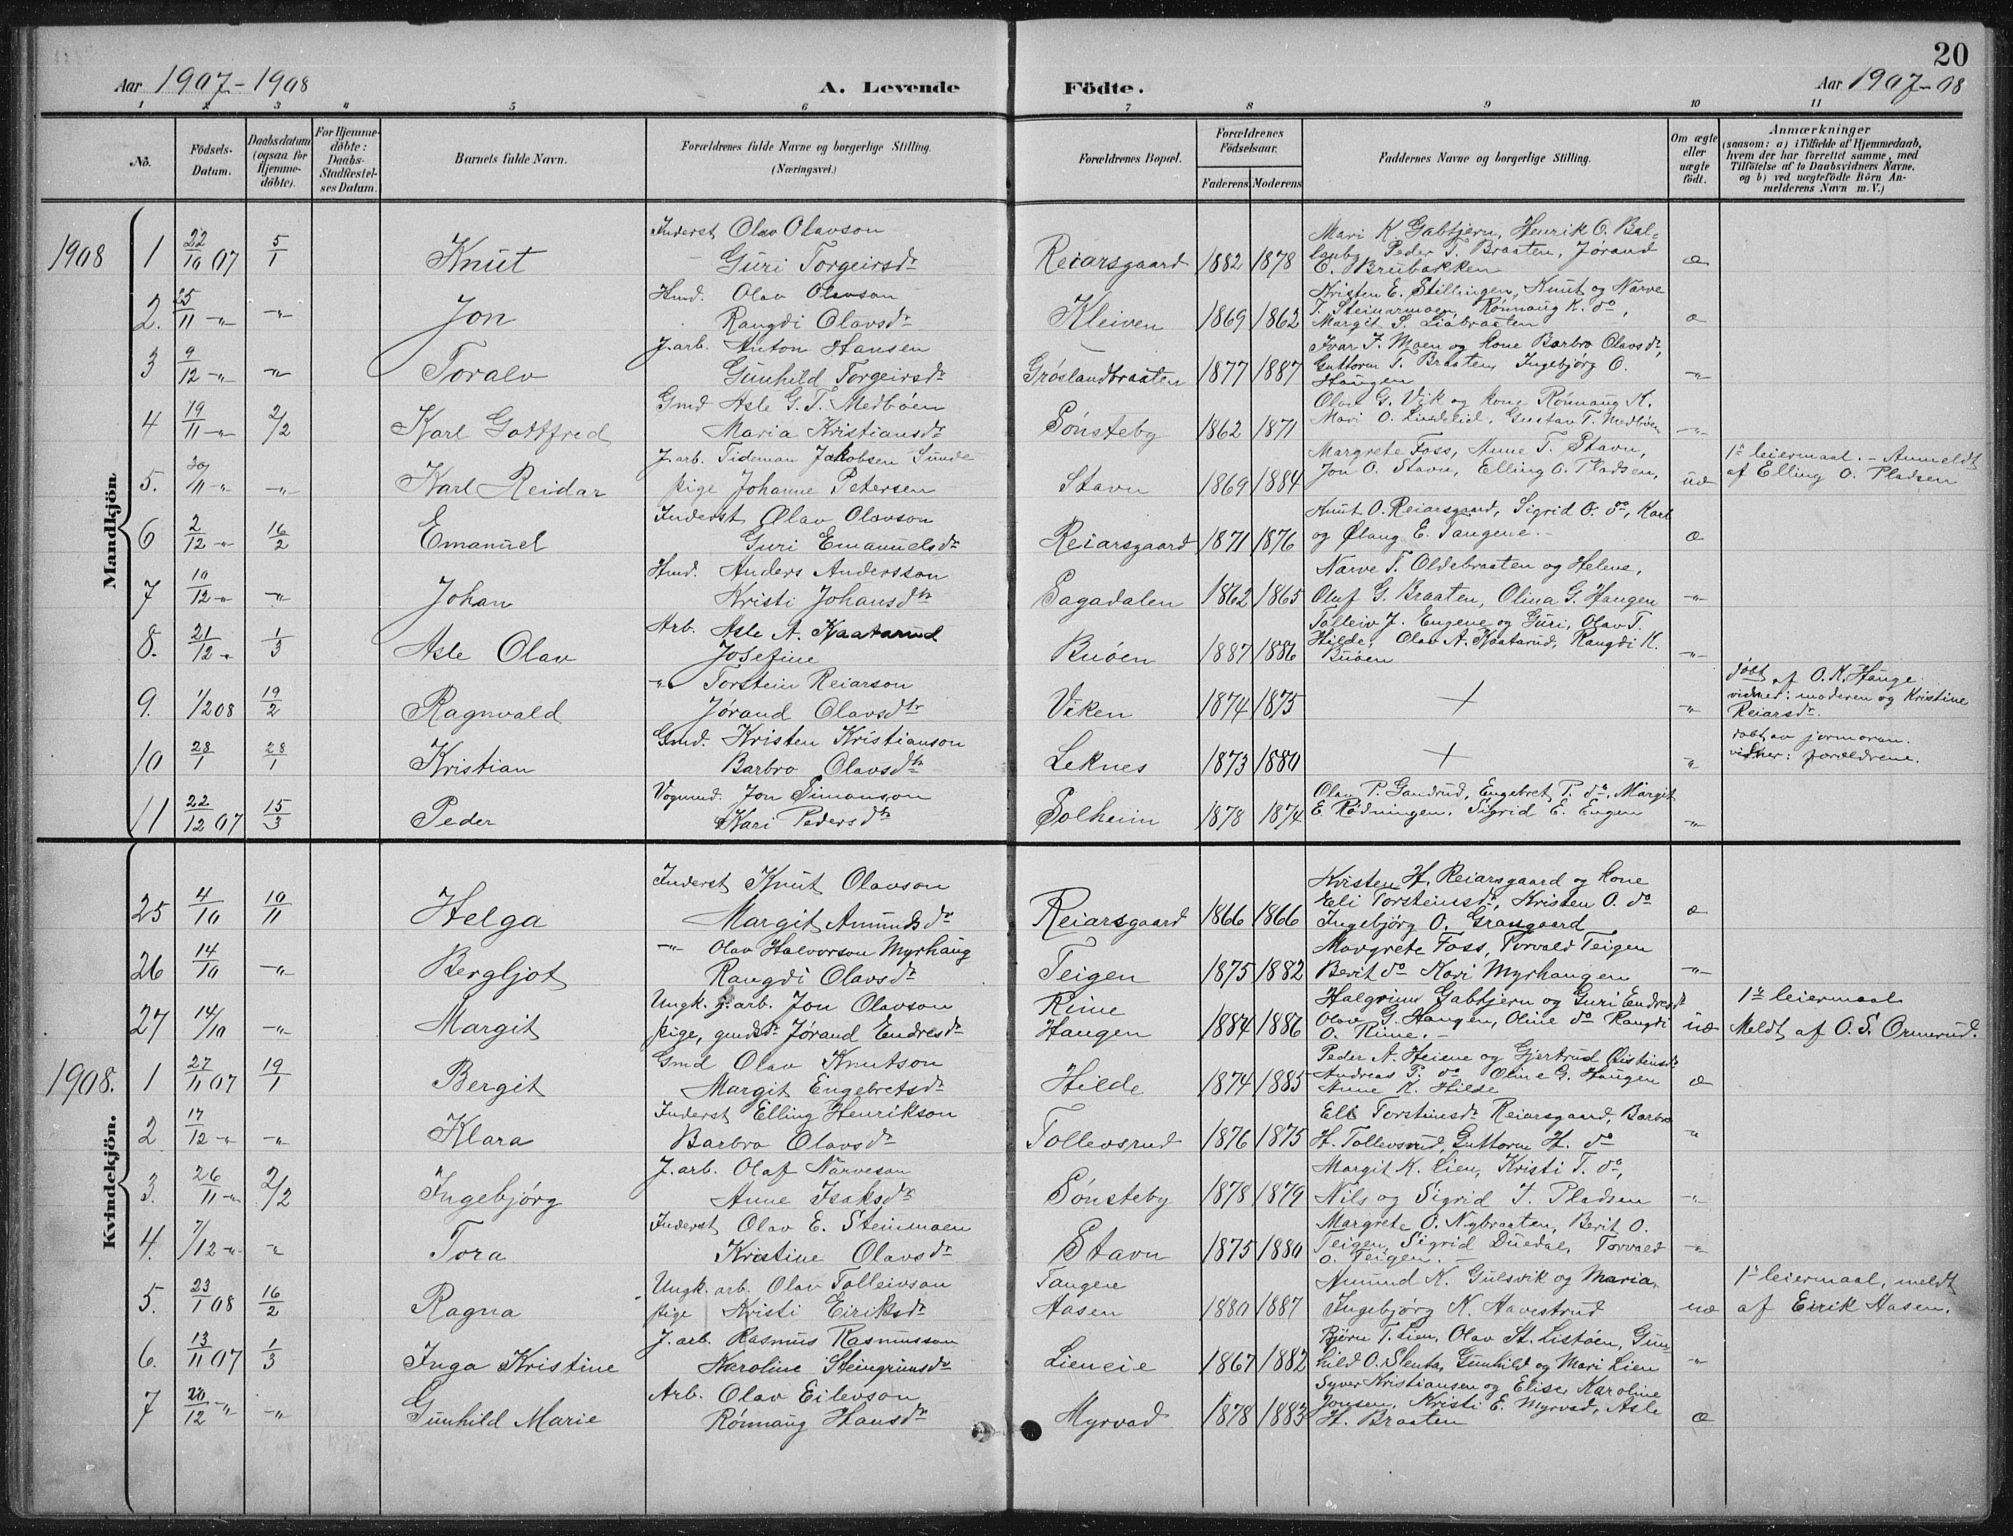 20
Aar 1907-1908 A. Levende Födte. Aar 1907-08
1 2 3 4 5 6 7 8 9 10 11
No. Födsels-Datum. Daabsdatum (ogsaa for Hjemme-döbte). For Hjemme-döbte: Daabs-Stadfæstel-ses Datum. Barnets fulde Navn. Forældrenes fulde Navne og borgerlige Stilling. (Næringsvei.) Forældrenes Bopæl. Forældrenes Födselsaar. Faderens Moderens Faddernes Navne og borgerlige Stilling. Om ægte eller uægte födt. Anmærkninger (saasom: a) i Tilfælde af Hjemmedaab, hvem der har forrettet samme, med Tilföielse af to Daabsvidners Navne, og b) ved uægtefödte Börn An-melderens Navn m. V.)
Mandkjön.
1908 1 22/10 07 5/1 Knut Inderst Olav Olavson
Guri Torgeirsdr Reiarsgaard 1882 1878 Mari K. Gabtjern, Henrik O. Bal-
Peder T. Braaten, Jørand
E. Brubakken æ
2. 25/11 -"- -"- Jon Hmd. Olav Olavson
Rangdi Olavsdr Kleiven 1869 1862 Kristen E. Stillingen, Knut og Narve
T. Steinarmoen, Rønnaug K. do,
Margit S. Liabraaten æ
3 9/12 -"- -"- Toralv J. arb. Anton Hansen
Gunhild Torgeirsdr Grøslandbraaten 1877 1887 Ivar J. Moen og kone Barbro Olavsdr,
Guttorm T. Braaten, Ingebjørg O.
Haugen -"-
4 19/11 -"- 2/2 Karl Gottfred Gmd Asle G. T. Medbøen
Maria Kristiansdr Sønsteby 1862 1871 Olav G. Vik og kone Rønnaug K.
Mari O. Lindelid, Gustav T. Medbøen -"-
5. 30/11 -"- -"- Karl Reidar J. arb. Tideman Jakobsen Sunde
pige Johanne Petersen Stavn 1869 1884 Margrete Foss, Anne T. Stavn,
Jon O. Stavn, Elling O. Pladsen, uæ 1ste leiermaal. - Anmeldt
af Elling O. Pladsen
6 2/12 -"- 16/2 Emanuel Inderst Olav Olavson
Guri Emanuelsdr Reiarsgaard 1871 1876 Knut O. Reiarsgaard, Sigrid O. do, Karl
og Ølaug E. Tangene. - æ
7 10/12 -"- -"- Johan Hmd. Anders Andersson
Kristi Johansdtr Sagadalen 1862 1865 Narve T. Oldebraaten og Helene,
Oluf G. Braaten, Olina G. Haugen -"-
8. 21/12 -"- 1/3 Asle Olav Arb. Asle A. Kaatarud
Josefine Buøen 1887 1886 Tolleiv J. Eugene og Guri, Olav T.
Hilde, Olav A. Kaatarud, Rangdi K.
Buøen -"-
9. 1/2 08 19/2 Ragnvald -"- Torstein Reiarson
Jørand Olavsdtr Viken 1874 1875 + -"- døbt af O. K. Hauge.
vidner: moderen og Kristine
Reiarsdr.
10 28/1 28/1 Kristian Gmd. Kristen Kristianson
Barbro Olavsdtr Leknes 1873 1880 + -"- døbt av jormoren.
vidner: forældrene.
11 22/12 07 15/3 Peder Vognmd. Jon Simonson
Kari Pedersdtr Solheim 1878 1874 Olav P. Gandrud, Engebret P. do, Margit
E. Rødningen, Sigrid E. Engen -"-
Kvindekjön.
25 4/10 10/11 Helga Inderst Knut Olavson
Margit Amundsdr Reiarsgaard 1866 1866 Kristen H. Reiarsgaard og kone
Eli Torsteinsdr, Kristen O. do
Ingebjørg O. Gransgaard æ
26 14/10 -"- Bergljot -"- Olav Halvorson Myrhaug
Rangdi Olavsdr Teigen 1875 1882 Margrete Foss, Torvald Teigen
Berit do Kari Myrhaugen -"-
27 14/10 -"- Margit Ungk. j. arb. Jon Olavson
pige, gmdsdr Jørand Endresdr Rime
Haugen 1884 1886 Halgrim Gabtjern og Guri Endresdr
Olave G. Haugen, Oline do Rangdi
O. Rime. - uæ 1ste leiermaal
Meldt af O. S. Ormerud.
1908. 1 27/11 07 19/1 Bergit Gmd Olav Knutson
Margit Engebretsdr Hilde 1874 1885 Peder A. Heiene og Gjertrud
Andreas P. do Oline G. Haugen
Anne K. Hilde æ
2 17/12 -"- -"- Klara Inderst Elling Henrikson
Barbro Olavsdr Tollevsrud 1876 1875 Eli Torstinsdr Reiarsgaard, Barbro
H. Tollevsrud, Guttorm H. do -"-
3. 26/11 -"- 2/2 Ingebjørg J. arb. Olaf Narveson
Anne Isaksdr Sønsteby 1878 1879 Margit K. Lien, Kristi T. do,
Nils og Sigrid J. Pladsen -"-
4. 7/12 -"- -"- Tora Inderst Olav E. Steinmoen
Kristine Olavsdr Stavn 1875 1880 Margrete O. Nybraaten, Berit O.
Teigen, Sigrid Duedal, Torvald
O. Teigen. - -"-
5. 23/1 08 16/2 Ragna Ungk. arb. Olav Tolleivson
pige Kristi Eiriksdr Tangene
Aasen 1880 1887 Amund K. Gulsvik og Maria,
Ingebjørg N. Aavestrud uæ 1ste leiermaal, meldt
af Eirik Aasen.
6. 13/11 07 1/3 Inga Kristine J. arb. Rasmus Rasmusson
Karoline Steingrimsdr Lieneie 1867 1882 Bjørn T. Lien, Olav St. Listøen, Gun-
hild O. Slenta, Gunhild og Mari Lien -"-
7 20/12 -"- -"- Gunhild Marie Arb. Olav Eilevson
Rønnaug Hansdr Myrvad 1878 1883 Syver Kristiansen og Elise Karoline
Jonsen, Kristi E. Myrvad, Asle
H. Braaten æ